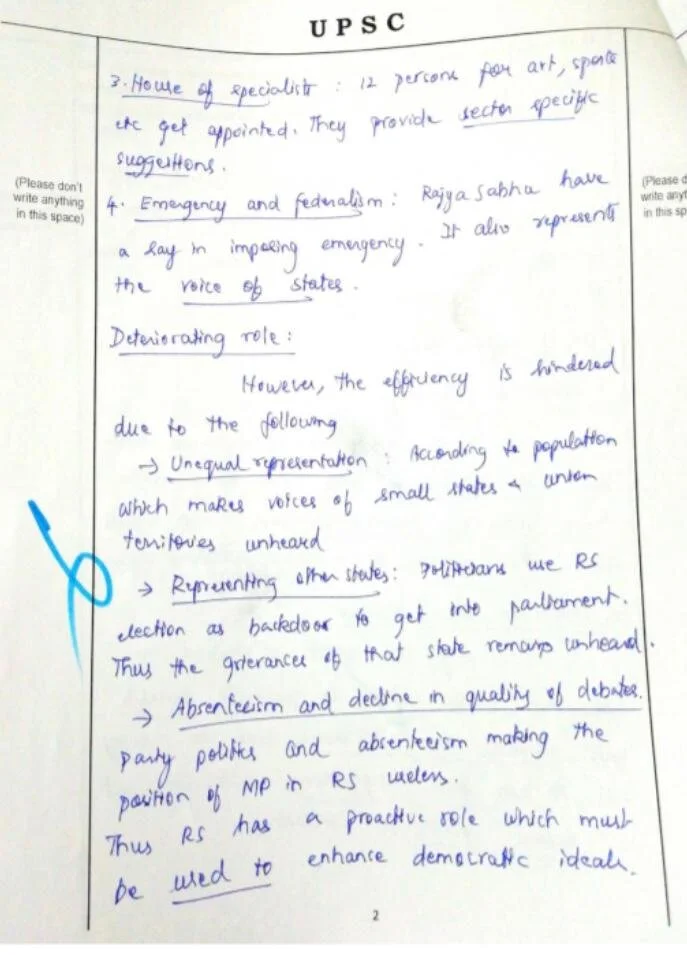 UPSC
3. House of specialists : 12 persons for art, sports
etc get appointed. They provide sector specific
suggestions.
(Please don't
write anything
in this space)
(Please d
write anyt
in this sp
4. Emergency and federalism : Rajya Sabha have
a say in imposing emergency. It also represents
the voice of states.
Deteriorating role :
However, the efficiency is hindered
due to the following
→ Unequal representation : According to population
which makes voices of small states & union
territories unheard
→ Representing other states : Politicians use RS
election as backdoor to get into parliament.
Thus the grievances of that state remains unheard.
→ Absenteeism and decline in quality of debates.
party politics and absenteeism making the
position of MP in RS useless.
Thus RS has a proactive role which must
be used to enhance democratic ideals.
2